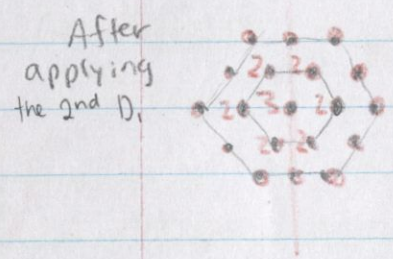 After
applying
the 2nd D,
2 2
2 3 2
2 2